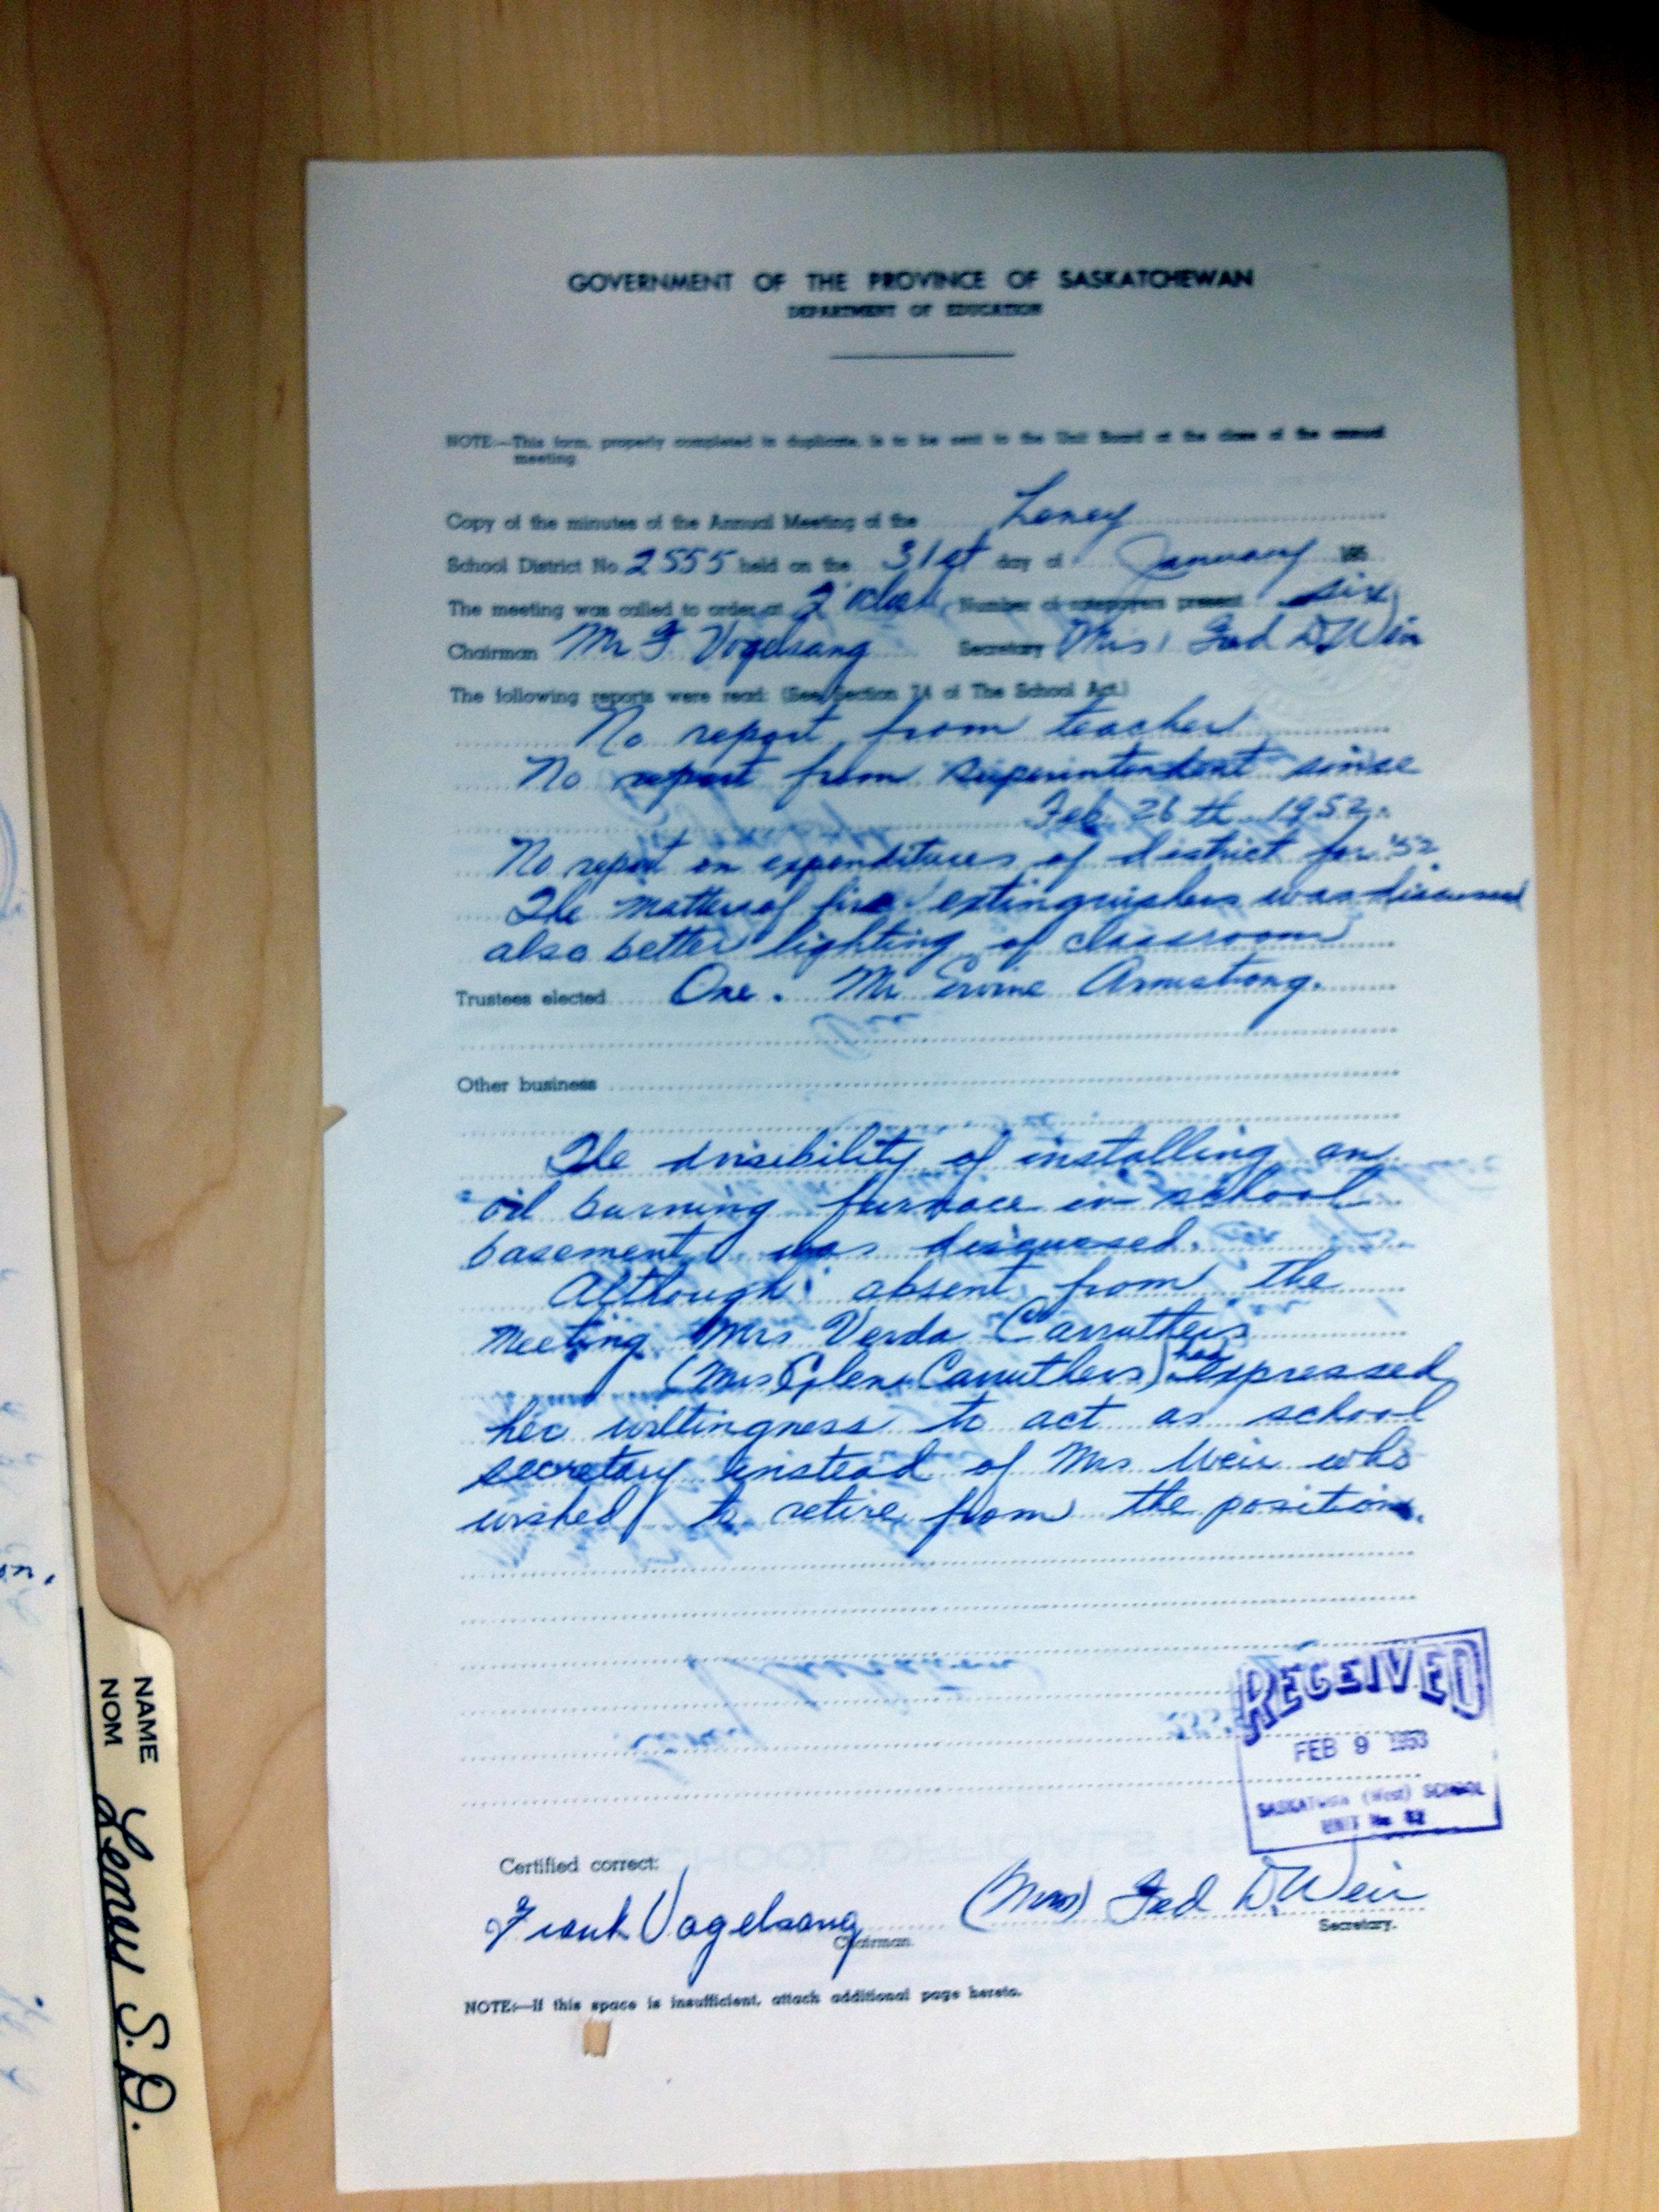 GOVERNMENT OF THE PROVINCE OF SASKATCHEWAN
DEPARTMENT OF EDUCATION
NOTE:—This form, properly completed in duplicate, is to be sent to the Unit Board at the close of the annual
meeting.
Copy of the minutes of the Annual Meeting of the Leney
School District No. 2555 held on the 31st day of January 195
The meeting was called to order at 2 Number of ratepayers present six
Chairman Mr F Vogelsang Secretary Mrs. Fred D. Weir
The following reports were read: (See Section 74 of The School Act.)
No report from teacher
No report from Superintendent since
Feb. 26th 1952.
No report on expenditures of district for '52.
The matter of fire extinguishers was discussed
also better lighting of classroom
Trustees elected One. Mr Ervine Armstrong.
Other business
The of installing an
oil burning furnace in school
basement was discussed.
Although absent from the
meeting Mrs Verda Carruthers
(Mrs Glen Carruthers) has expressed
her willingness to act as school
secretary instead of Mrs Weir who
wished to retire from the position.
RECEIVED
FEB 9 1953
SASKATOON (West) SCHOOL
UNIT No. 42
Certified correct:
Frank Vogelsang (Mrs) Fred D. Weir
Chairman. Secretary.
NOTE:—If this space is insufficient, attach additional page hereto.
NAME
NOM
Leney S.D.